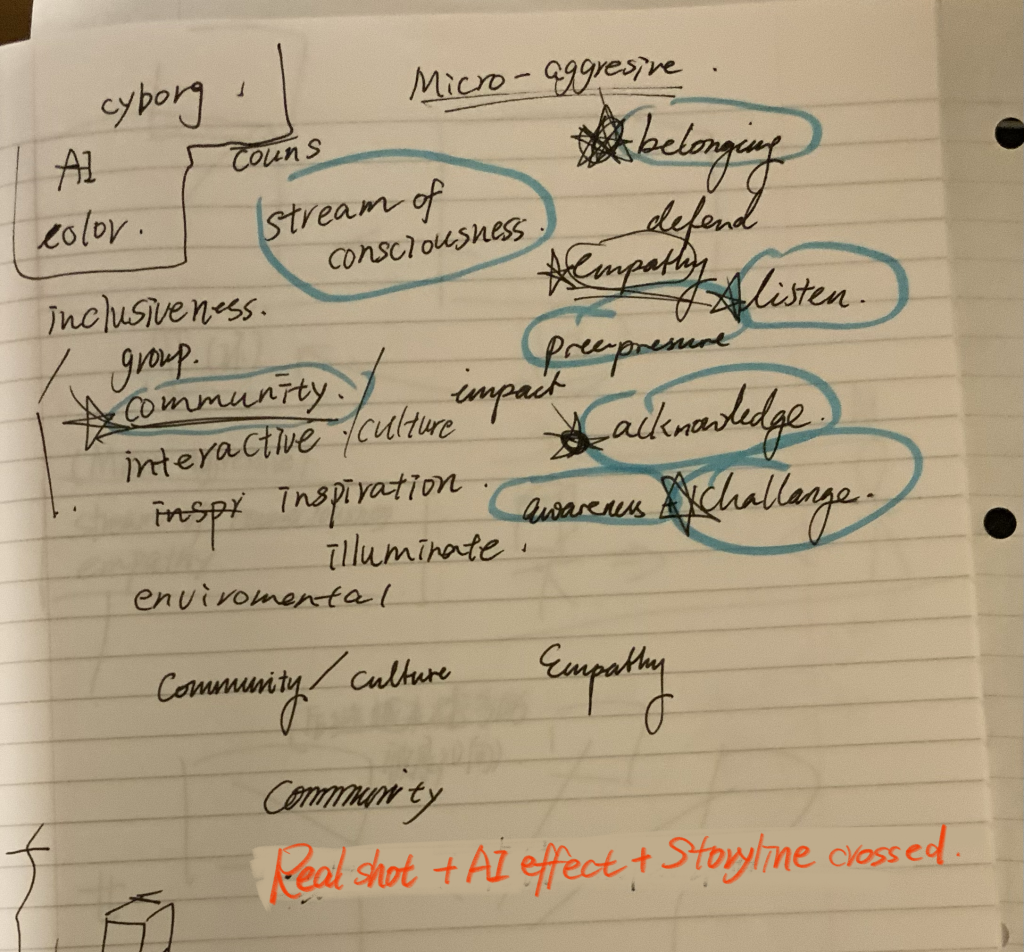 cyborg .
Micro-aggresive .
AI
color.
couns
belonging
stream of
consciousness.
defend
empathy
listen.
inclusiveness.
group.
preepressure
community.
impact
interactive / culture
acknowledge.
inspi inspiration .
awareness
challange.
illuminate .
enviromental
Community / culture
Empathy
Community
Real shot + AI effect + Storyline crossed.